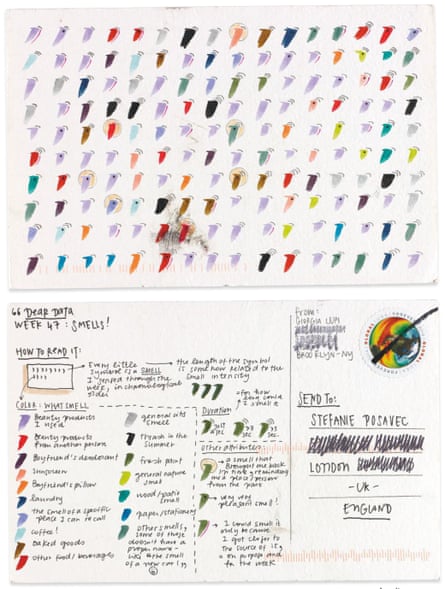 DEAR DATA
WEEK 47: SMELLS!
HOW TO READ IT:
Every little
symbol is a SMELL
I sensed through the
week, in chronological
order
the length of the symbol
is somehow related to the
smell intensity
COLOR: WHAT SMELL
Beauty products
I used
Beauty products
from another person
Boyfriend's deodorant
sunscreen
Boyfriend's pillow
laundry
the smell of a specific
place I can recall
coffee!
baked goods
other food/beverages
general old
smell
Trash in the
summer
fresh paint
general nature
smell
wood/rustic
smell
paper/stationery
other smells,
some of those
doesn't have a
proper name
like the smell
of a new car
Duration
for how
long could I
smell it
just
sec.
sec.
Other attributes:
a smell that
brought me back
in time, reminding
me a place/person
from the past
very very
pleasant smell!
I could smell it
only because
I got closer to
the source of it,
on purpose and
for the week
From:
GIORGIA LUPI
BROOKLYN-NY
GLOBAL
FOREVER
SEND TO:
STEFANIE POSAVEC
LONDON
-UK-
ENGLAND